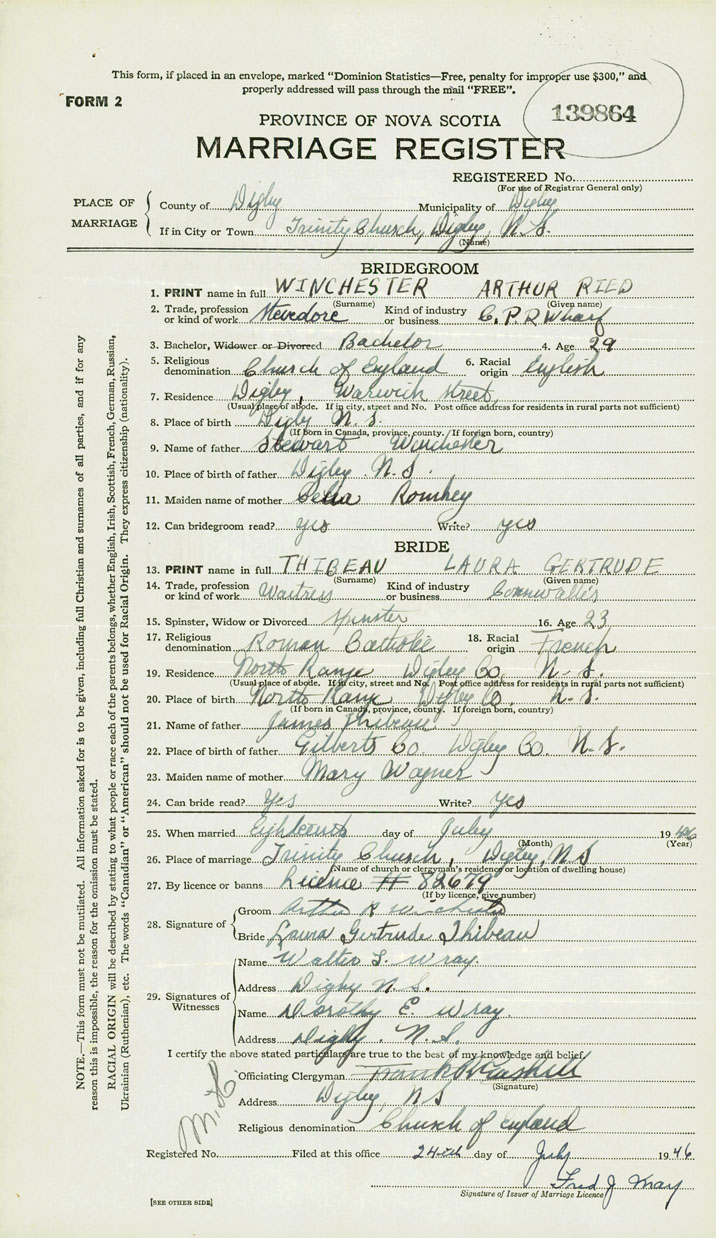 This form, if placed in an envelope, marked "Dominion Statistics—Free, penalty for improper use $300," and
properly addressed will pass through the mail "FREE".
FORM 2
139864
PROVINCE OF NOVA SCOTIA
MARRIAGE REGISTER
REGISTERED No.
(For use of Registrar General only)
PLACE OF MARRIAGE
County of Digby Municipality of Digby
If in City or Town Trinity Church, Digby, N.S.
(Name)
BRIDEGROOM
1. PRINT name in full WINCHESTER ARTHUR RIED
(Surname) (Given name)
2. Trade, profession or kind of work Stevedore Kind of industry or business C.P.R Wharf
3. Bachelor, Widower or Divorced Bachelor 4. Age 29
5. Religious denomination Church of England 6. Racial origin English
7. Residence Digby, Warwick Street,
(Usual place of abode. If in city, street and No. Post office address for residents in rural parts not sufficient)
8. Place of birth Digby N.S.
(If born in Canada, province, county. If foreign born, country)
9. Name of father Stewart Winchester
10. Place of birth of father Digby N.S.
11. Maiden name of mother Romkey
12. Can bridegroom read? yes Write? yes
BRIDE
13. PRINT name in full THIBEAU LAURA GERTRUDE
(Surname) (Given name)
14. Trade, profession or kind of work Waitress Kind of industry or business Cornwallis
15. Spinster, Widow or Divorced spinster 16. Age 23
17. Religious denomination Roman Catholic 18. Racial origin French
19. Residence North Range Digby Co. N.S.
(Usual place of abode. If in city, street and No. Post office address for residents in rural parts not sufficient)
20. Place of birth North Range Digby Co. N.S.
(If born in Canada, province, county. If foreign born, country)
21. Name of father James Thibeau
22. Place of birth of father Gilberts Co. Digby Co. N.S.
23. Maiden name of mother Mary Wagner
24. Can bride read? Yes Write? Yes
25. When married Eighteenth day of July 1946
(Month) (Year)
26. Place of marriage Trinity Church, Digby, NS
(Name of church or clergyman's residence or location of dwelling house)
27. By licence or banns Licence # 82679
(If by licence, give number)
28. Signature of
Groom Arthur R Winchester
Bride Laura Gertrude Thibeau
29. Signatures of Witnesses
Name Walter S. Wray.
Address Digby N.S.
Name Dorothy E. Wray.
Address Digby. N.S.
I certify the above stated particulars are true to the best of my knowledge and belief.
Officiating Clergyman Frank
(Signature)
Address Digby NS
Religious denomination Church of England
Registered No. Filed at this office 24th day of July 1946
Fred J May
Signature of Issuer of Marriage Licence
[SEE OTHER SIDE]
NOTE.—This form must not be mutilated. All information asked for is to be given, including full Christian and surnames of all parties, and if for any
reason this is impossible, the reason for the omission must be stated.
RACIAL ORIGIN will be described by stating to what people or race each of the parents belongs, whether English, Irish, Scottish, French, German, Russian,
Ukrainian (Ruthenian), etc. The words "Canadian" or "American" should not be used for Racial Origin. They express citizenship (nationality).